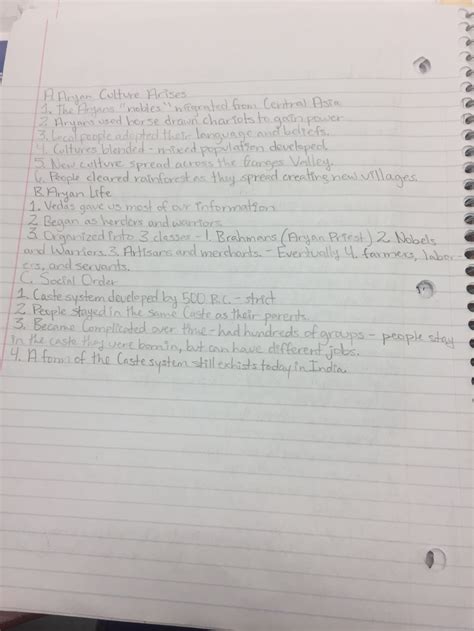 A. Aryan Culture Arises
1. The Aryans "nobles" migrated from Central Asia
2. Aryans used horse drawn chariots to gain power
3. Local people adopted their language and beliefs.
4. Cultures blended - mixed population developed
5. New culture spread across the Ganges Valley.
6. People cleared rainforest as they spread creating new villages.
B. Aryan Life
1. Vedas gave us most of our information
2 Began as herders and warriors
3. Organized into 3 classes - 1. Brahmans (Aryan Priest) 2. Nobels
and Warriors 3. Artisans and merchants. - Eventually 4. farmers, labor-
ers, and servants.
C. Social Order
1. Caste system developed by 500 B.C. - strict
2. People stayed in the same Caste as their parents.
3. Became complicated over time - had hundreds of groups - people stay
in the caste they were born in, but can have different jobs.
4. A form of the Caste system still exhists today in India.